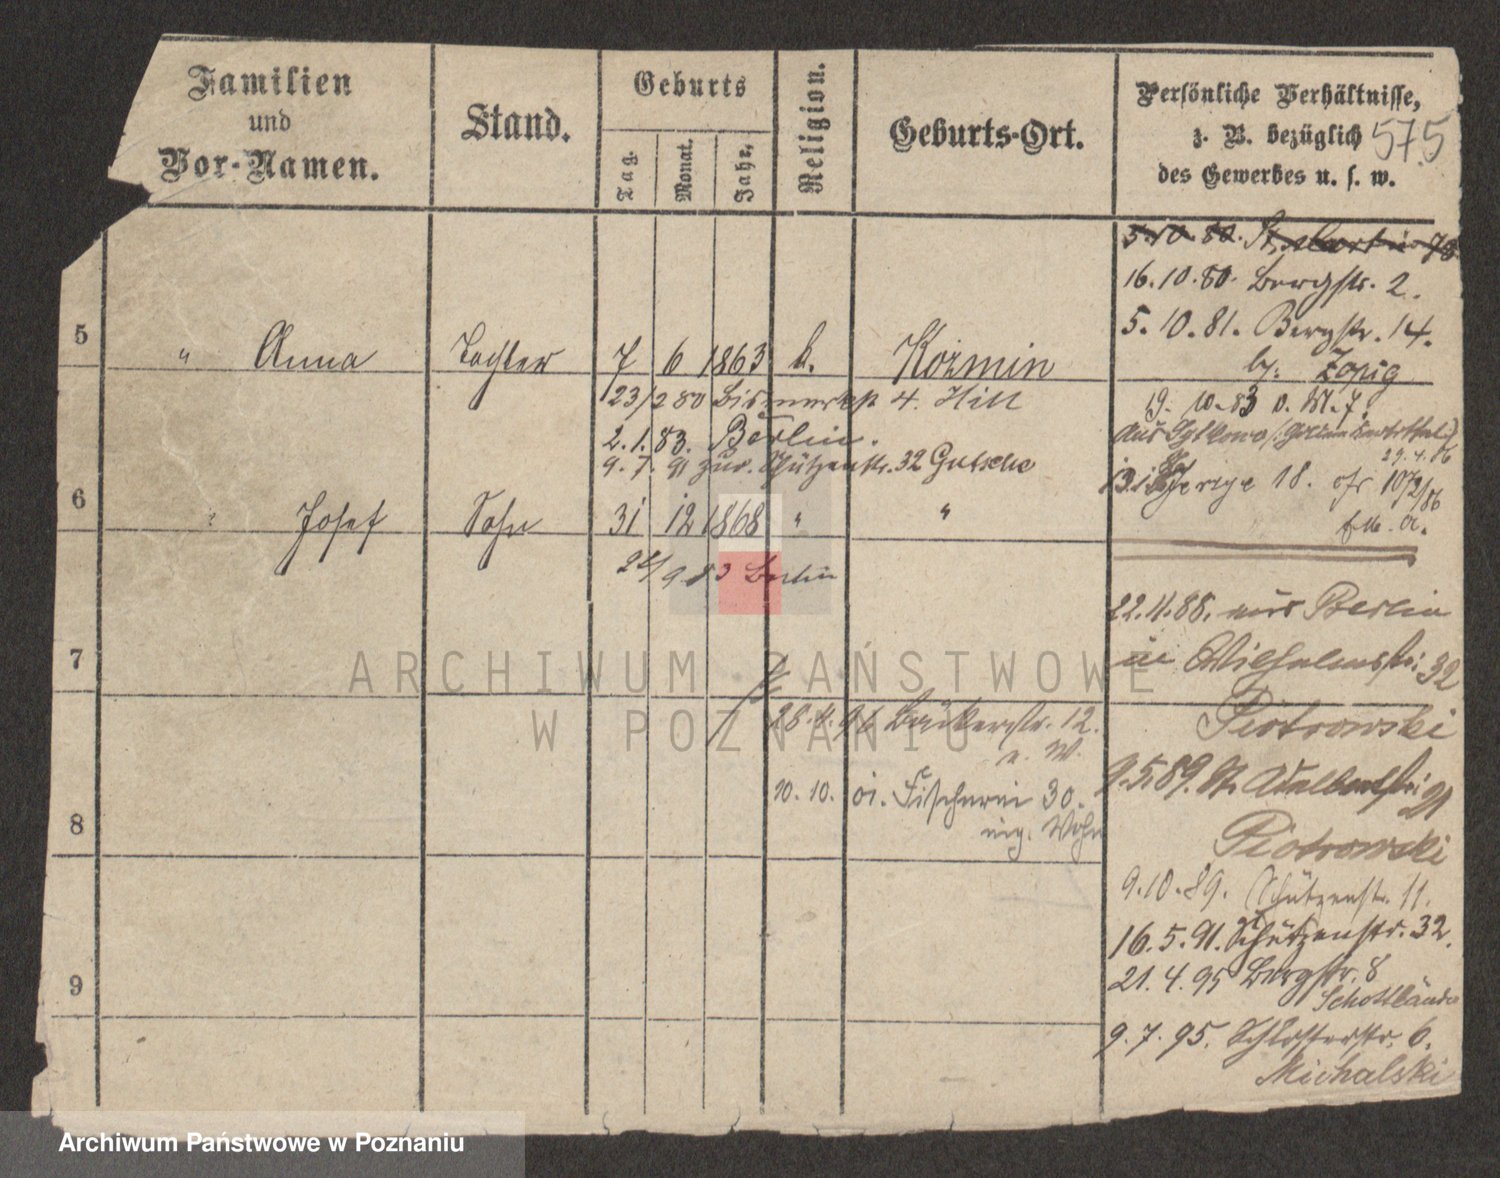 Familien
und
Vor-Namen.
Stand.
Geburts
Tag.
Monat.
Jahr.
Religion.
Geburts-Ort.
Persönliche Verhältnisse,
z. B. bezüglich
des Gewerbes u. s. w.
575
5.10.80. St. Martin 78.
16.10.80. Bergstr. 2.
5.10.81. Bergstr. 14.
5 " Anna Tochter 7 6 1863 k. Kozmin
by. Zopig
23/2 80 Bismarckst 4. Hill
19. 10. 83
2.1.83. Berlin.
9.7.91 zur. Schützenstr. 32 Gutsche
29.4.86
18. 1072/86
6 " Josef Sohn 31 12 1868 " "
9 83 Berlin
22.11.88. aus Berlin
in Wilhelmstr: 32
Piotrowski
7
28.4.96 Bäckerstr. 12.
n. W.
9.5.89. St. Adalbertstr: 21
Piotrowski
10.10. 01. Fischerei 30.
eig. Wohn
8
9.10.89. Schützenstr. 11.
16.5.91. Schützenstr. 32.
21.4.95 Bergstr. 8
Schottländer
9
9.7.95. Schlosserstr. 6.
Michalski
ARCHIWUM PAŃSTWOWE
W POZNANIU
Archiwum Państwowe w Poznaniu